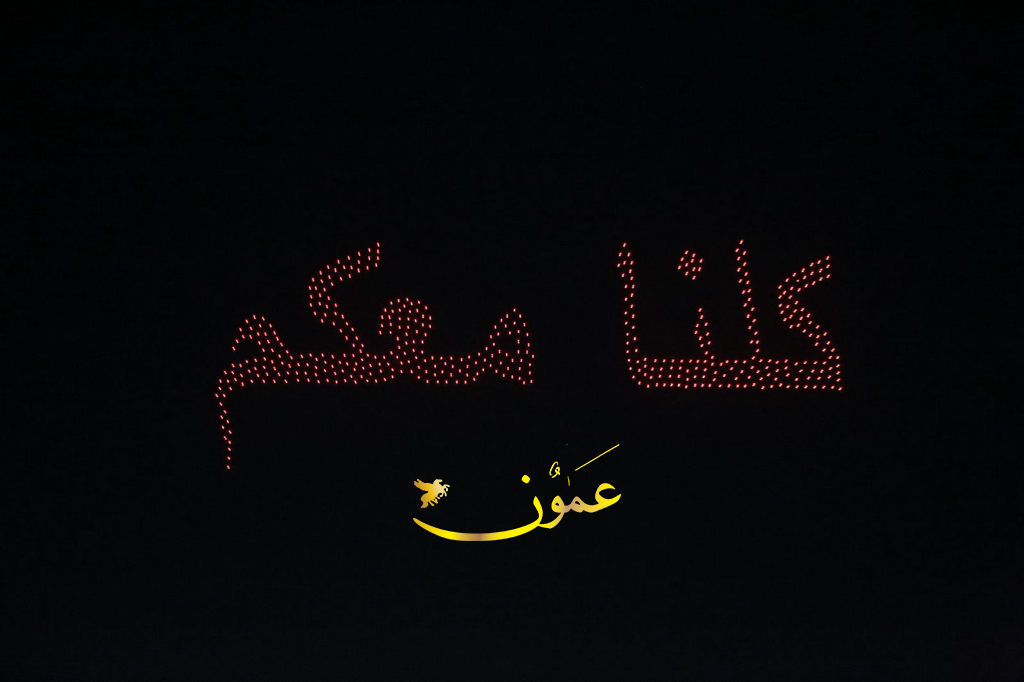 كلنا معكم
عمون